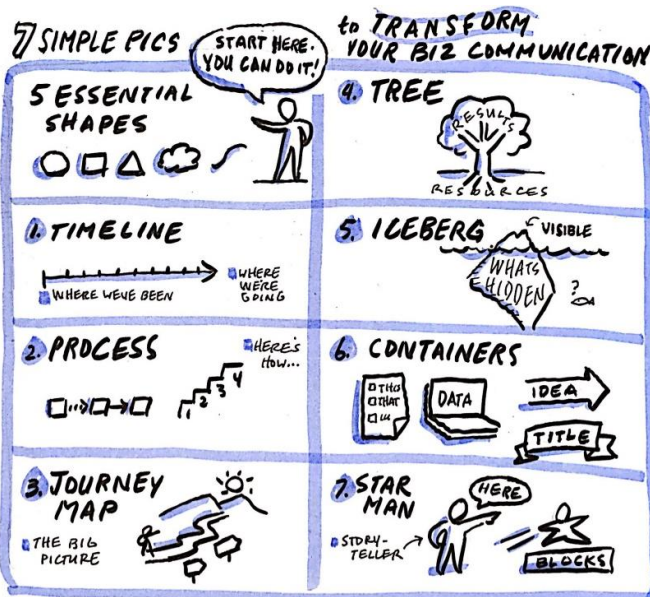 7 SIMPLE PICS
to TRANSFORM
YOUR BIZ COMMUNICATION
START HERE.
YOU CAN DO IT!
5 ESSENTIAL
SHAPES
1. TIMELINE
WHERE WEVE BEEN
WHERE
WE'RE
GOING
2. PROCESS
HERE'S
HOW...
1 2 3 4
3. JOURNEY
MAP
THE BIG
PICTURE
4. TREE
RESULTS
RESOURCES
5. ICEBERG
VISIBLE
WHATS
HIDDEN
?
6. CONTAINERS
THIS
THAT
DATA
IDEA
TITLE
7. STAR
MAN
HERE
STORY-
TELLER
BLOCKS